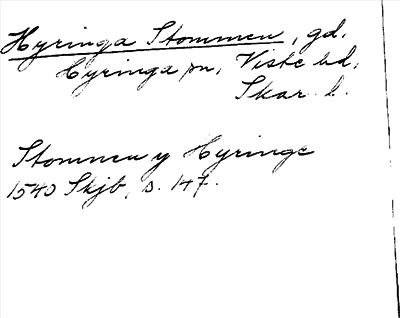 Hyringa Stommen, gd,
Hyringa sn, Viste hd,
Skar. l.
Stommen y Hyringe
1540 Skjb, s. 147.